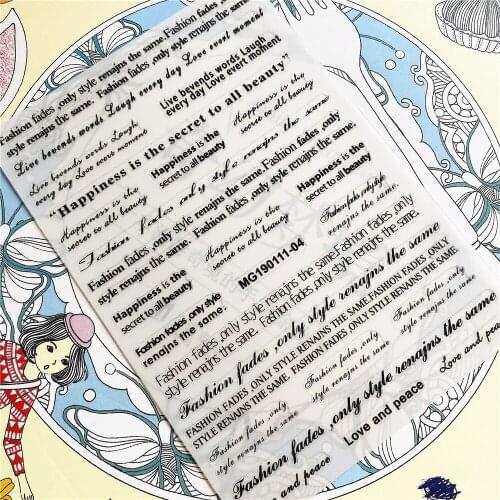 Fashion fades ,only style renajns the same.Fashion fades ,only
style renajns the same. Fashion fades ,only style renajns the same.
Love bevends words Laugh every day Love evert moment
Live bevends words Laugh
every day Love evert moment
Love bevends words Laugh
every day Love evert moment
Happiness is the
secret to all beauty
"Happiness is the secret to all beauty"
Happiness is the
secret to all beauty
Happiness is the
secret to all beauty
Happiness is the
secret to all beauty
Fashion fades only style renajns the same
Happiness is the
secret to all beauty
Fashion fades ,only style renajns the same.Fashion fades ,only
style renajns the same. Fashion fades ,only style renajns the same.
Happiness is the
secret to all beauty
Fashion fades ,only style
renajns the same.
Happiness is the
secret to all beauty
MG190111-04
Fashion fades ,only style
renajns the same.
Fashion fades ,only style renajns the same.Fashion fades ,only
style renajns the same. Fashion fades ,only style renajns the same.
Fashion fades ,only style renajns the same
FASHION FADES ,ONLY STYLE RENAJNS THE SAME.FASHION FADES ,ONLY
STYLE RENAJNS THE SAME. FASHION FADES ,ONLY STYLE RENAJNS THE SAME.
Fashion fades ,only
style renajns the same.
Fashion fades ,only
style renajns the same.
Fashion fades ,only
style renajns the same.
Love and peace
Fashion fades ,only style renajns the same
Love and peace
Love and peace